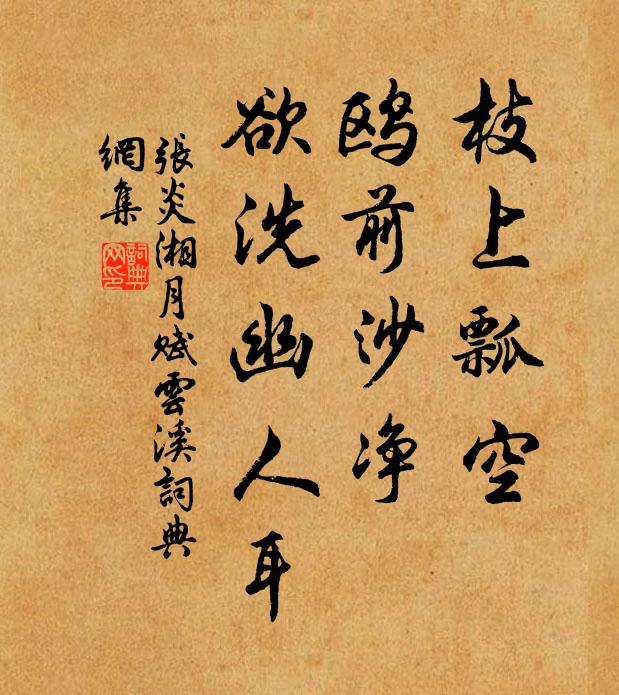 枝上瓢空
鸥前沙净
欲洗幽人耳
張炎湘月賦雲溪詞典
網集
詞典
网印